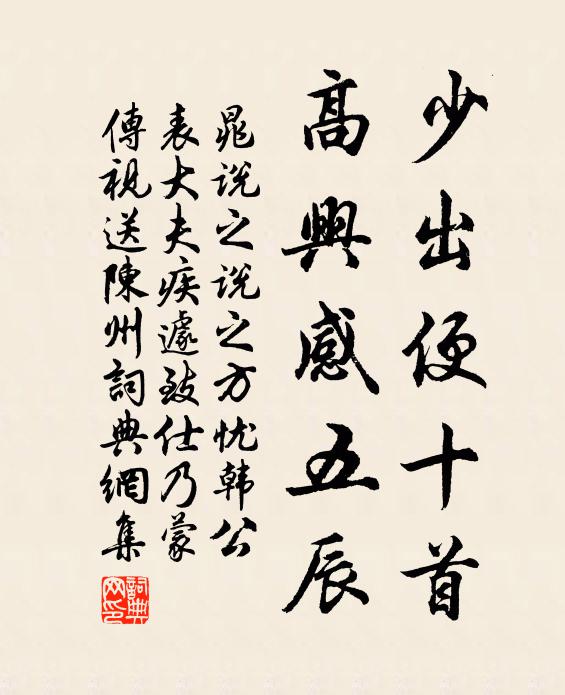 少出便十首
高興感五辰
晁説之説之方忧韩公
表大夫疾遽致仕乃蒙
傳視送陳州詞典網集
詞典
网印